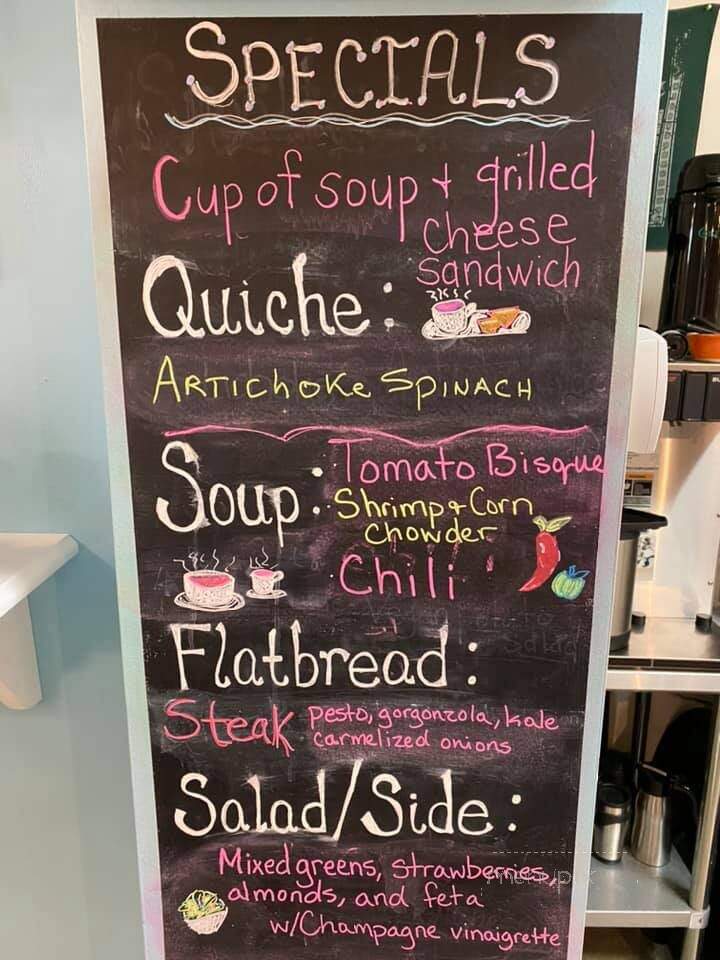 SPECIALS
Cup of soup + grilled
cheese
sandwich
Quiche:
ARTIchoKe SPINACH
Soup:
· Tomato Bisque
· Shrimp + Corn
Chowder
· Chili
Flatbread:
Steak pesto, gorgonzola, kale
carmelized onions
Salad/Side:
Mixed greens, strawberries,
almonds, and feta
w/Champagne vinaigrette